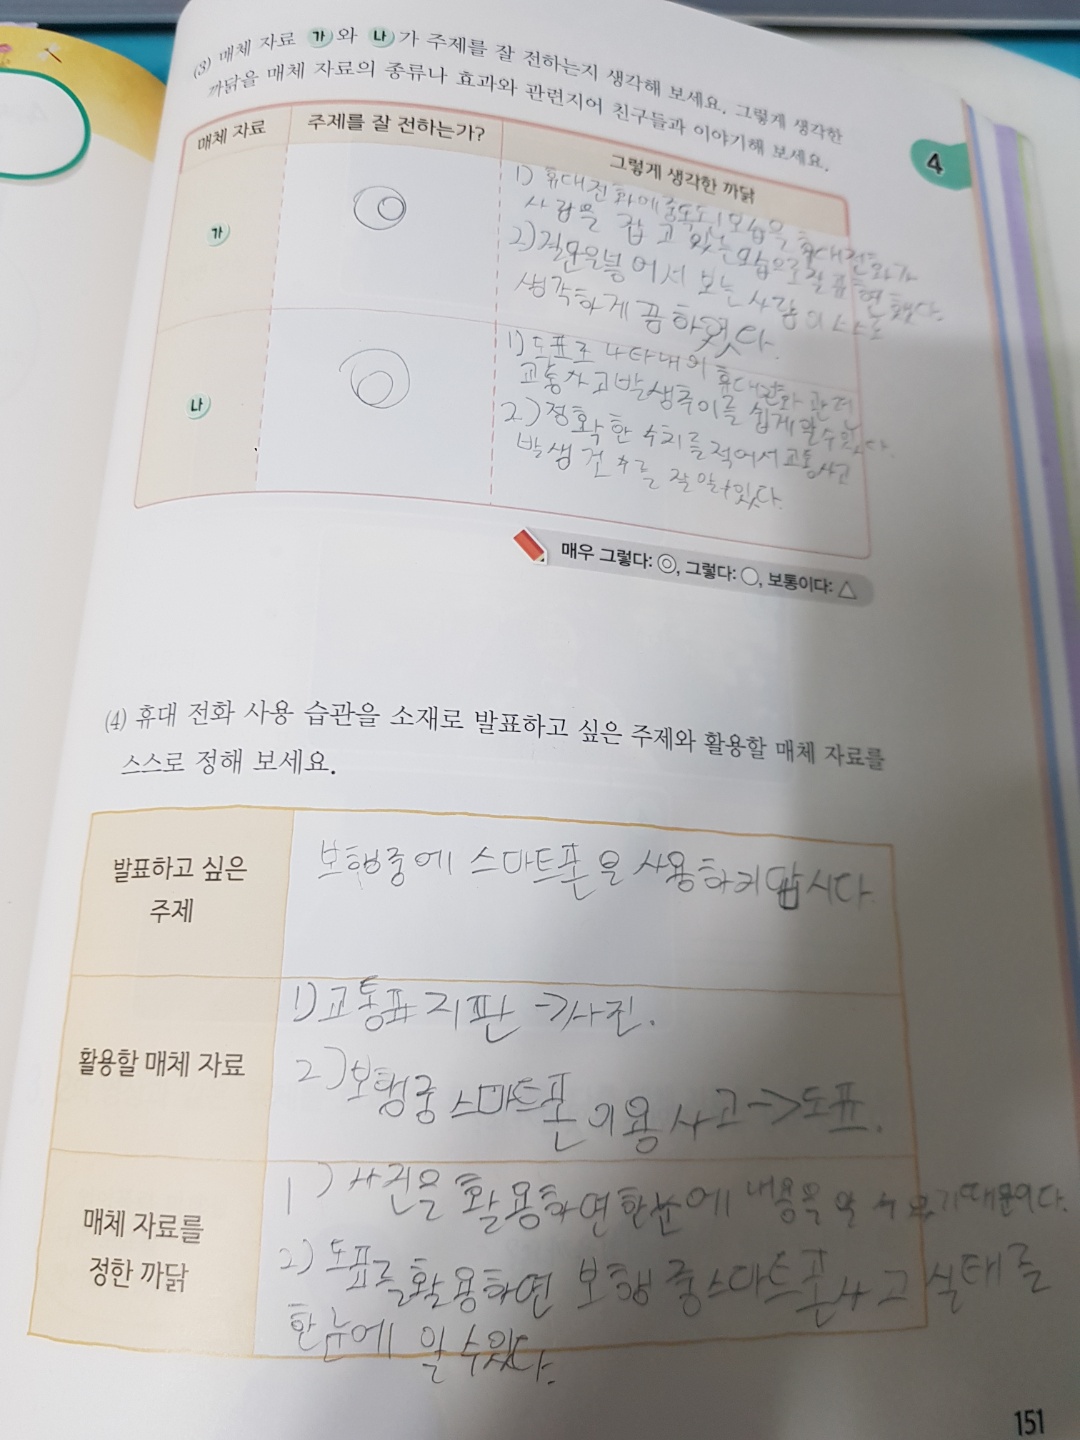 (3) 매체 자료 가 와 나 가 주제를 잘 전하는지 생각해 보세요. 그렇게 생각한
까닭을 매체 자료의 종류나 효과와 관련지어 친구들과 이야기해 보세요.
4
매체 자료
주제를 잘 전하는가?
그렇게 생각한 까닭
가
◎
1) 휴대전화에 중독된 모습을 휴대전화가
사람을 잡고 있는 모습으로 잘 표현했다.
2) 질문을 넣어서 보는 사람이 스스로
생각하게끔 하였다.
나
◎
1) 도표로 나타내어 휴대전화 관련
교통사고 발생 추이를 쉽게 알 수 있다.
2) 정확한 수치를 적어서 교통사고
발생 건수를 잘 알 수 있다.
매우 그렇다: ◎, 그렇다: ○, 보통이다: △
(4) 휴대 전화 사용 습관을 소재로 발표하고 싶은 주제와 활용할 매체 자료를
스스로 정해 보세요.
발표하고 싶은
주제
보행중에 스마트폰을 사용하지 맙시다.
활용할 매체 자료
1) 교통표지판 -> 사진.
2) 보행중 스마트폰 이용 사고 -> 도표.
매체 자료를
정한 까닭
1) 사진을 활용하면 한눈에 내용을 알 수 있기 때문이다.
2) 도표를 활용하면 보행중 스마트폰 사고 실태를
한눈에 알 수 있다.
151